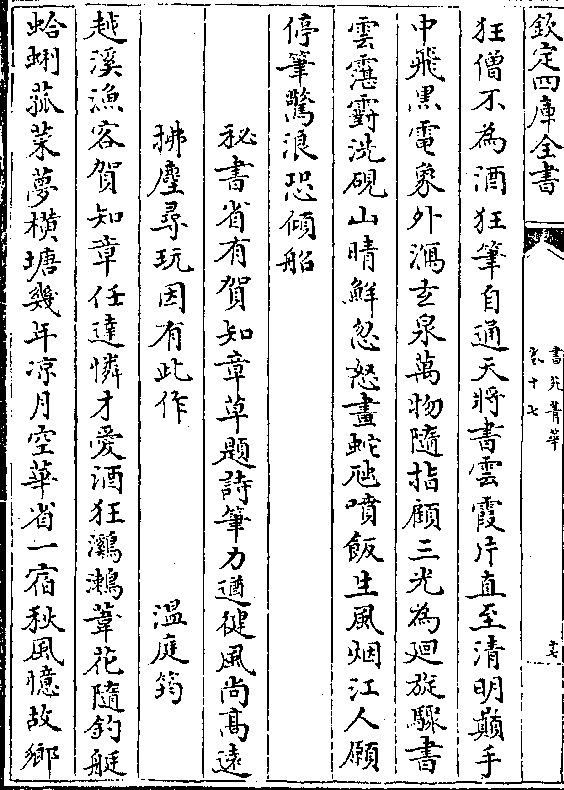 欽定四庫全書
書苑菁華
卷十七
狂僧不為酒狂筆自通天將書雲霞片直至清明巔手
中飛黑電象外瀉玄泉萬物隨指顧三光為迴旋驟書
雲霮䨴洗硯山晴鮮忽怒畫蛇虺噴飯生風烟江人願
停筆驚浪恐傾船
秘書省有賀知章草題詩筆力遒健風尚高遠
拂塵尋玩因有此作　溫庭筠
越溪漁客賀知章任達憐才愛酒狂鸂鶒葦花隨釣艇
蛤蜊菰菜夢橫塘幾年凉月空華省一宿秋風憶故鄉